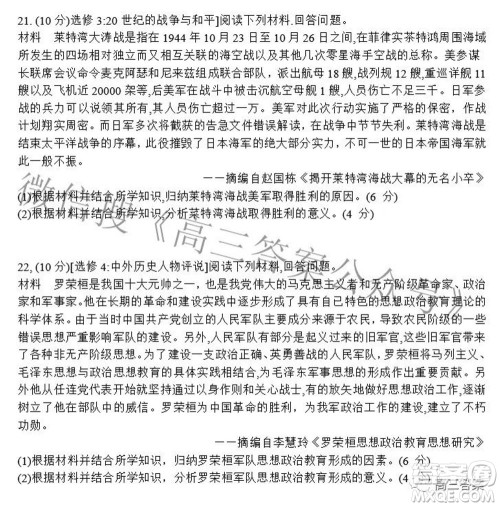 21. (10 分)[选修 3:20 世纪的战争与和平]阅读下列材料.回答问题。
材料　莱特湾大涛战是指在 1944 年 10 月 23 日至 10 月 26 日之间,在菲律实茶特鸿周围海域
所发生的四场相对独立而又相互关联的海空战以及其他几次零星海手空战的总称。美参谋
长联席会议命令麦克阿瑟和尼来茲组成联合部队，派出航母 18 艘,战列规 12 艘,重巡详舰 11
艘以及飞机近 20000 架等,后美军在战斗中被击沉航空母舰 1 艘,人员伤亡不足三千。日军参
战的兵力可以说领其所有,其人员伤亡超过一万。美军对此次行动实施了严格的保密，作战
计划翔实周自。而日军多次将截获的告急文件错误解读，在战争中节节失利。莱特湾海战是
结束太平洋战争的序幕，此役摧毁了日本海军的绝大部分实力，不可一世的日本帝国海军就
此一般不振。
——摘编自赵国栋《揭开莱特湾海战大幕的无名小卒》
(1)根据材料并结合所学知识,归纳莱特湾海战美军取得胜利的原因。(6 分)
(2)根据材料并结合所学知识,分析莱特湾海战取得胜利的意义。(4 分)
22, (10 分)[选修 4:中外历史人物评说]阅读下列材料,回答问题。
材料　罗荣桓是我国十大元帅之一，也是我党伟大的马克思主义者和无产阶级革命家、政治
家和军事家。他在长期的革命和建设实践中逐步形成了具有自己特色的思想政治教育理论的
科学体系。由于当时中国共产党创立的人民军队成分主要来源于农民，导致农民阶级的一些
错误思想严重影响军队的建设。另外,人民军队有部分是起义过来的旧军官,这些旧军官带来
了各种非无产阶级思想。为了建设一支政治正确、英勇善战的人民军队，罗荣桓将马列主义、
毛泽东思想与思想政治教育的具体实践相结合，为毛泽东军事思想的形成作出重要贡献。另
外他从任连党代表开始就坚持通过以身作则和关心战士,有的放矢地做好思想政治工作,逐渐
树立了他在部队中的威信。罗荣桓为中国革命的胜利，为我军政治工作的建设，立下了不朽
功勋。
——摘编自李慧玲《罗荣桓思想政治教育思想研究》
(1)根据材料并结合所学知识，归纳罗荣桓军队思想政治教育形成的因素。(6 分)
(2)根据材料并结合所学知识，分析罗荣桓军队思想政治教育形成的意义。(4
微信搜《高三答案公众号》
高三答案